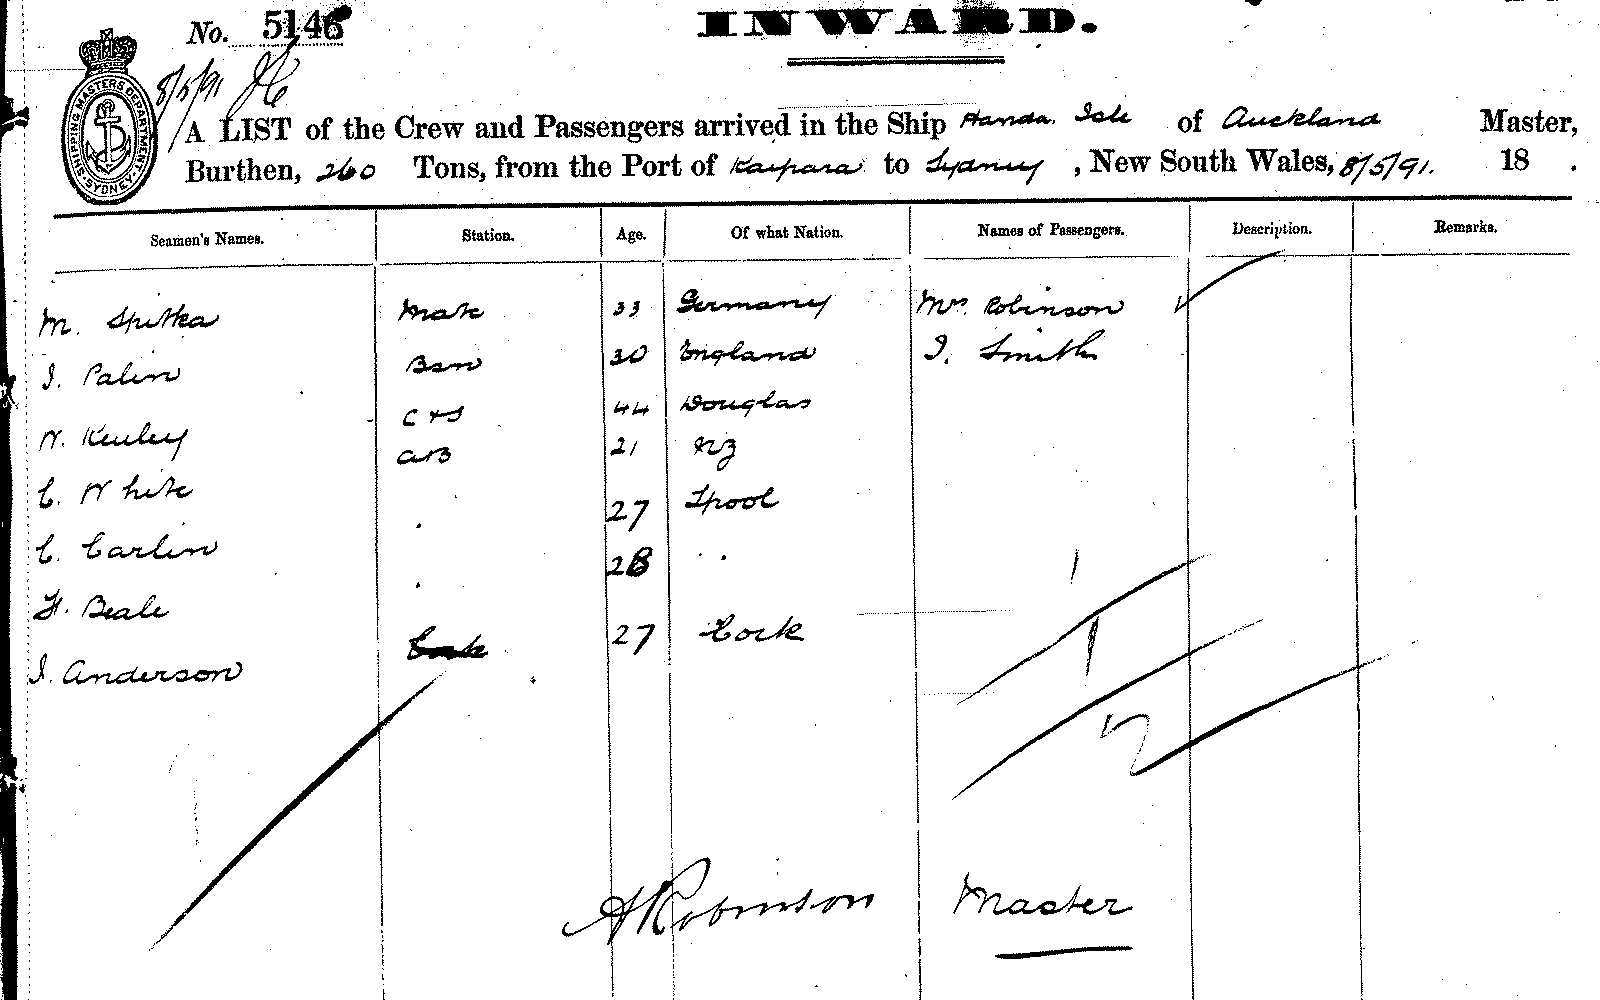 No. 5146
INWARD.
8/5/91
SHIPPING MASTERS DEPARTMENT SYDNEY
A LIST of the Crew and Passengers arrived in the Ship Handa Isle of Auckland Master,
Burthen, 260 Tons, from the Port of Kaipara to Sydney, New South Wales, 8/5/91. 18 .
Seamen's Names. Station. Age. Of what Nation. Names of Passengers. Description. Remarks.
M. Spitka Mate 33 Germany Mrs Robinson
J. Palin Bsn 30 England J. Smith
W. C & S 44 Douglas
C. White AB 21 NZ
C. Carlin 27 Lpool
H. Beale 28
J. Anderson 27 Cork
A Robinson Master